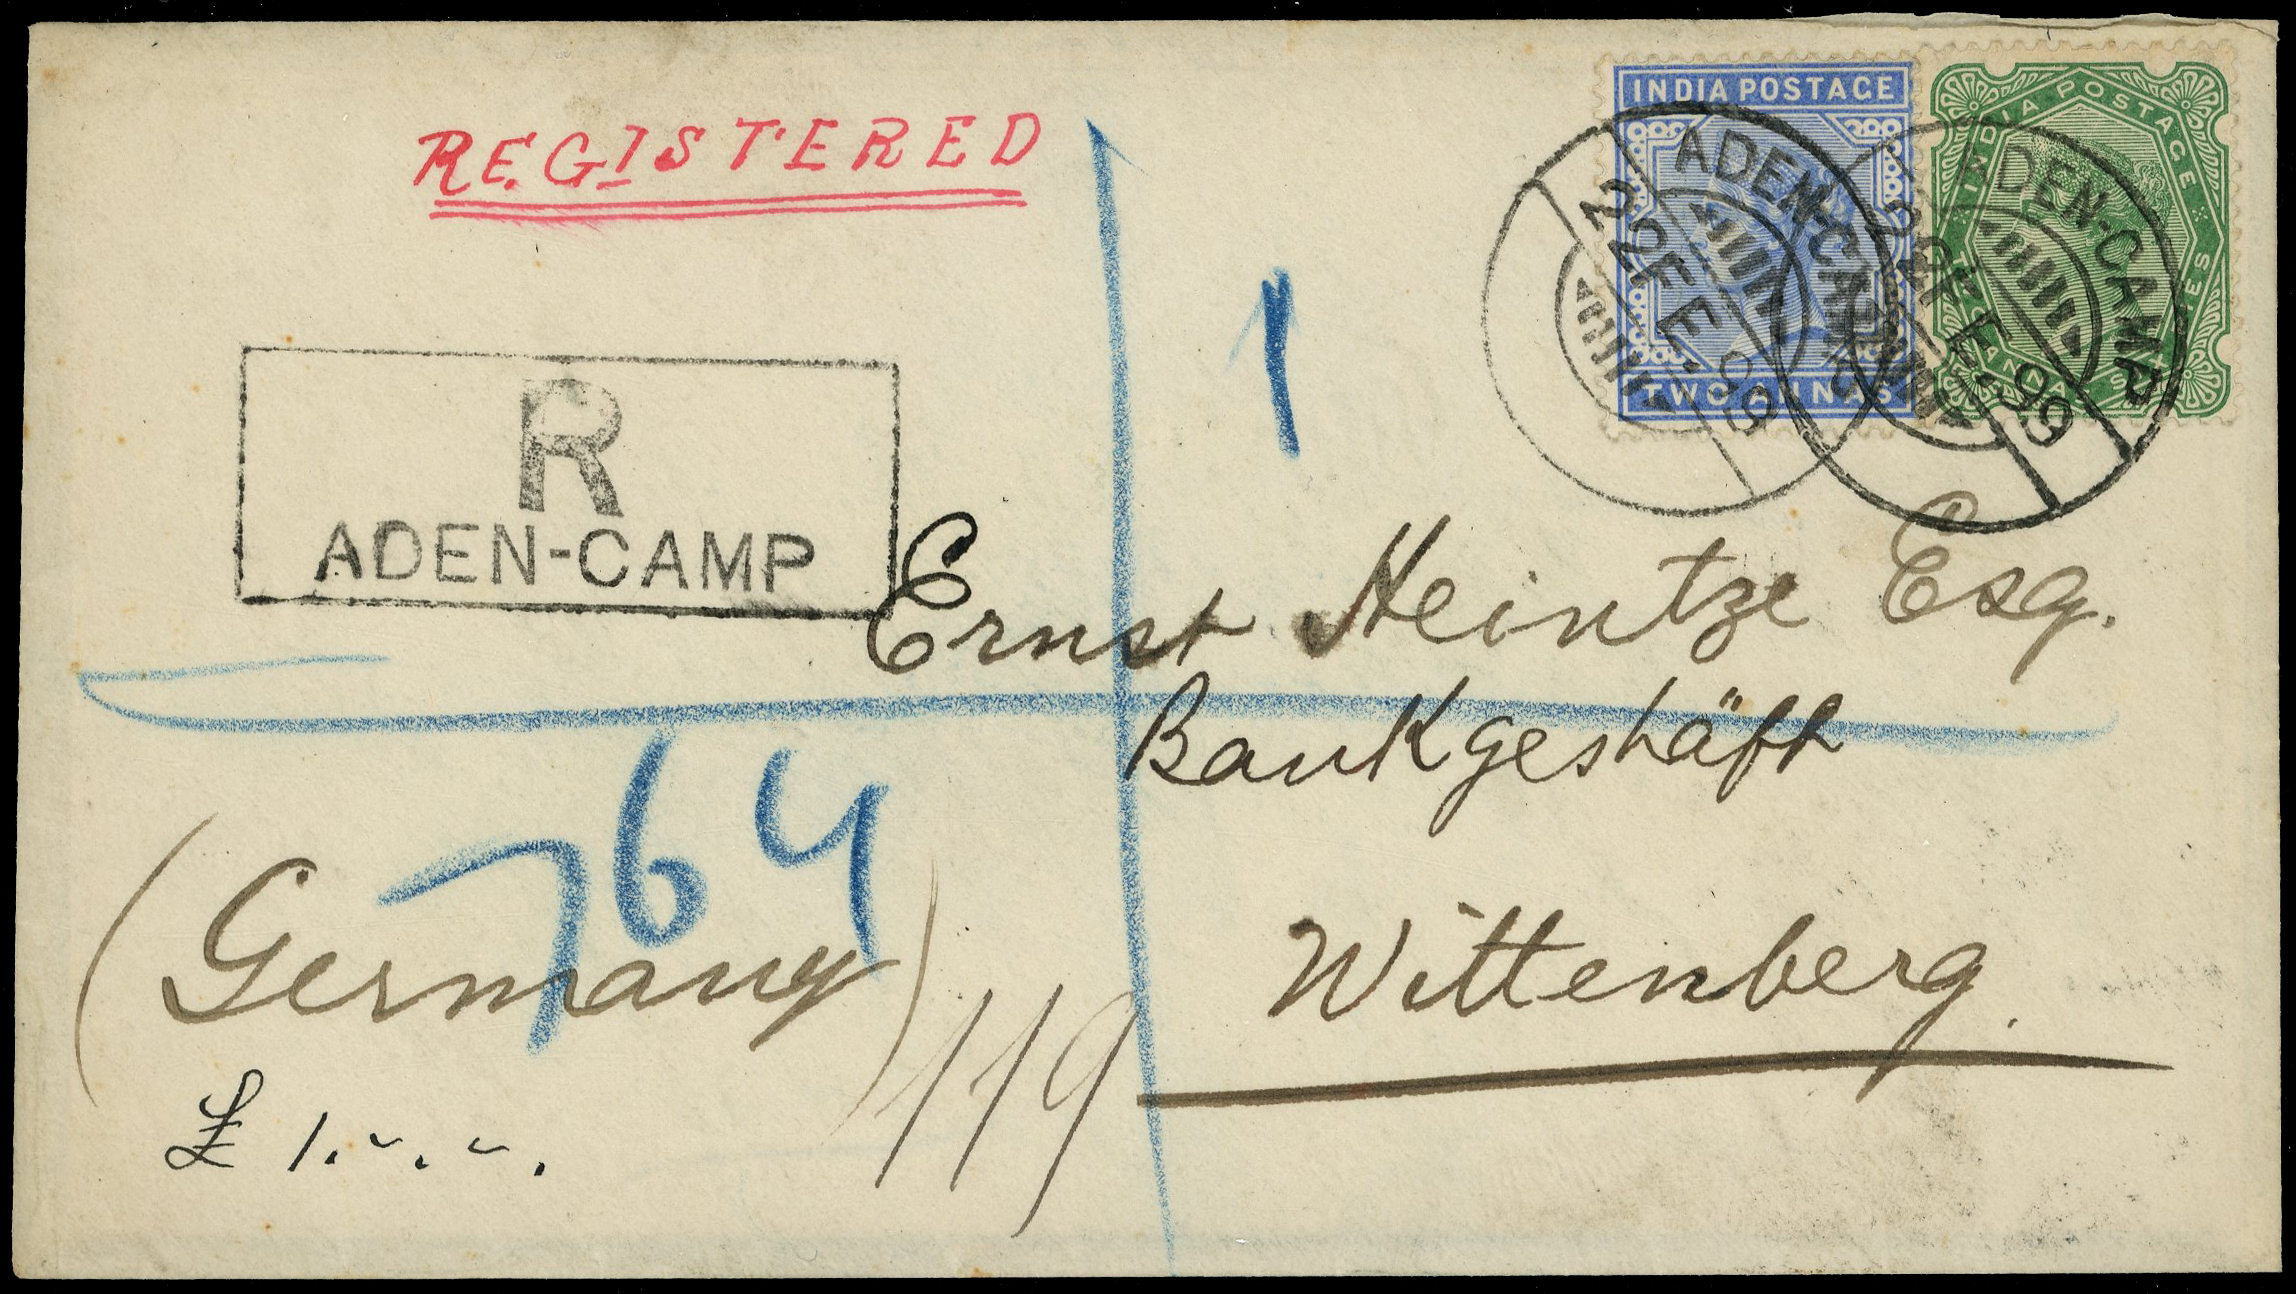 REGISTERED
INDIA POSTAGE
TWO ANNAS
INDIA POSTAGE
ADEN-CAMP
22 FE. 99
ADEN-CAMP
22 FE. 99
1
R
ADEN-CAMP
Ernst Heintze Esq.
Bankgeshäft
764
(Germany)
Wittenberg.
119
£ 1.-.-.